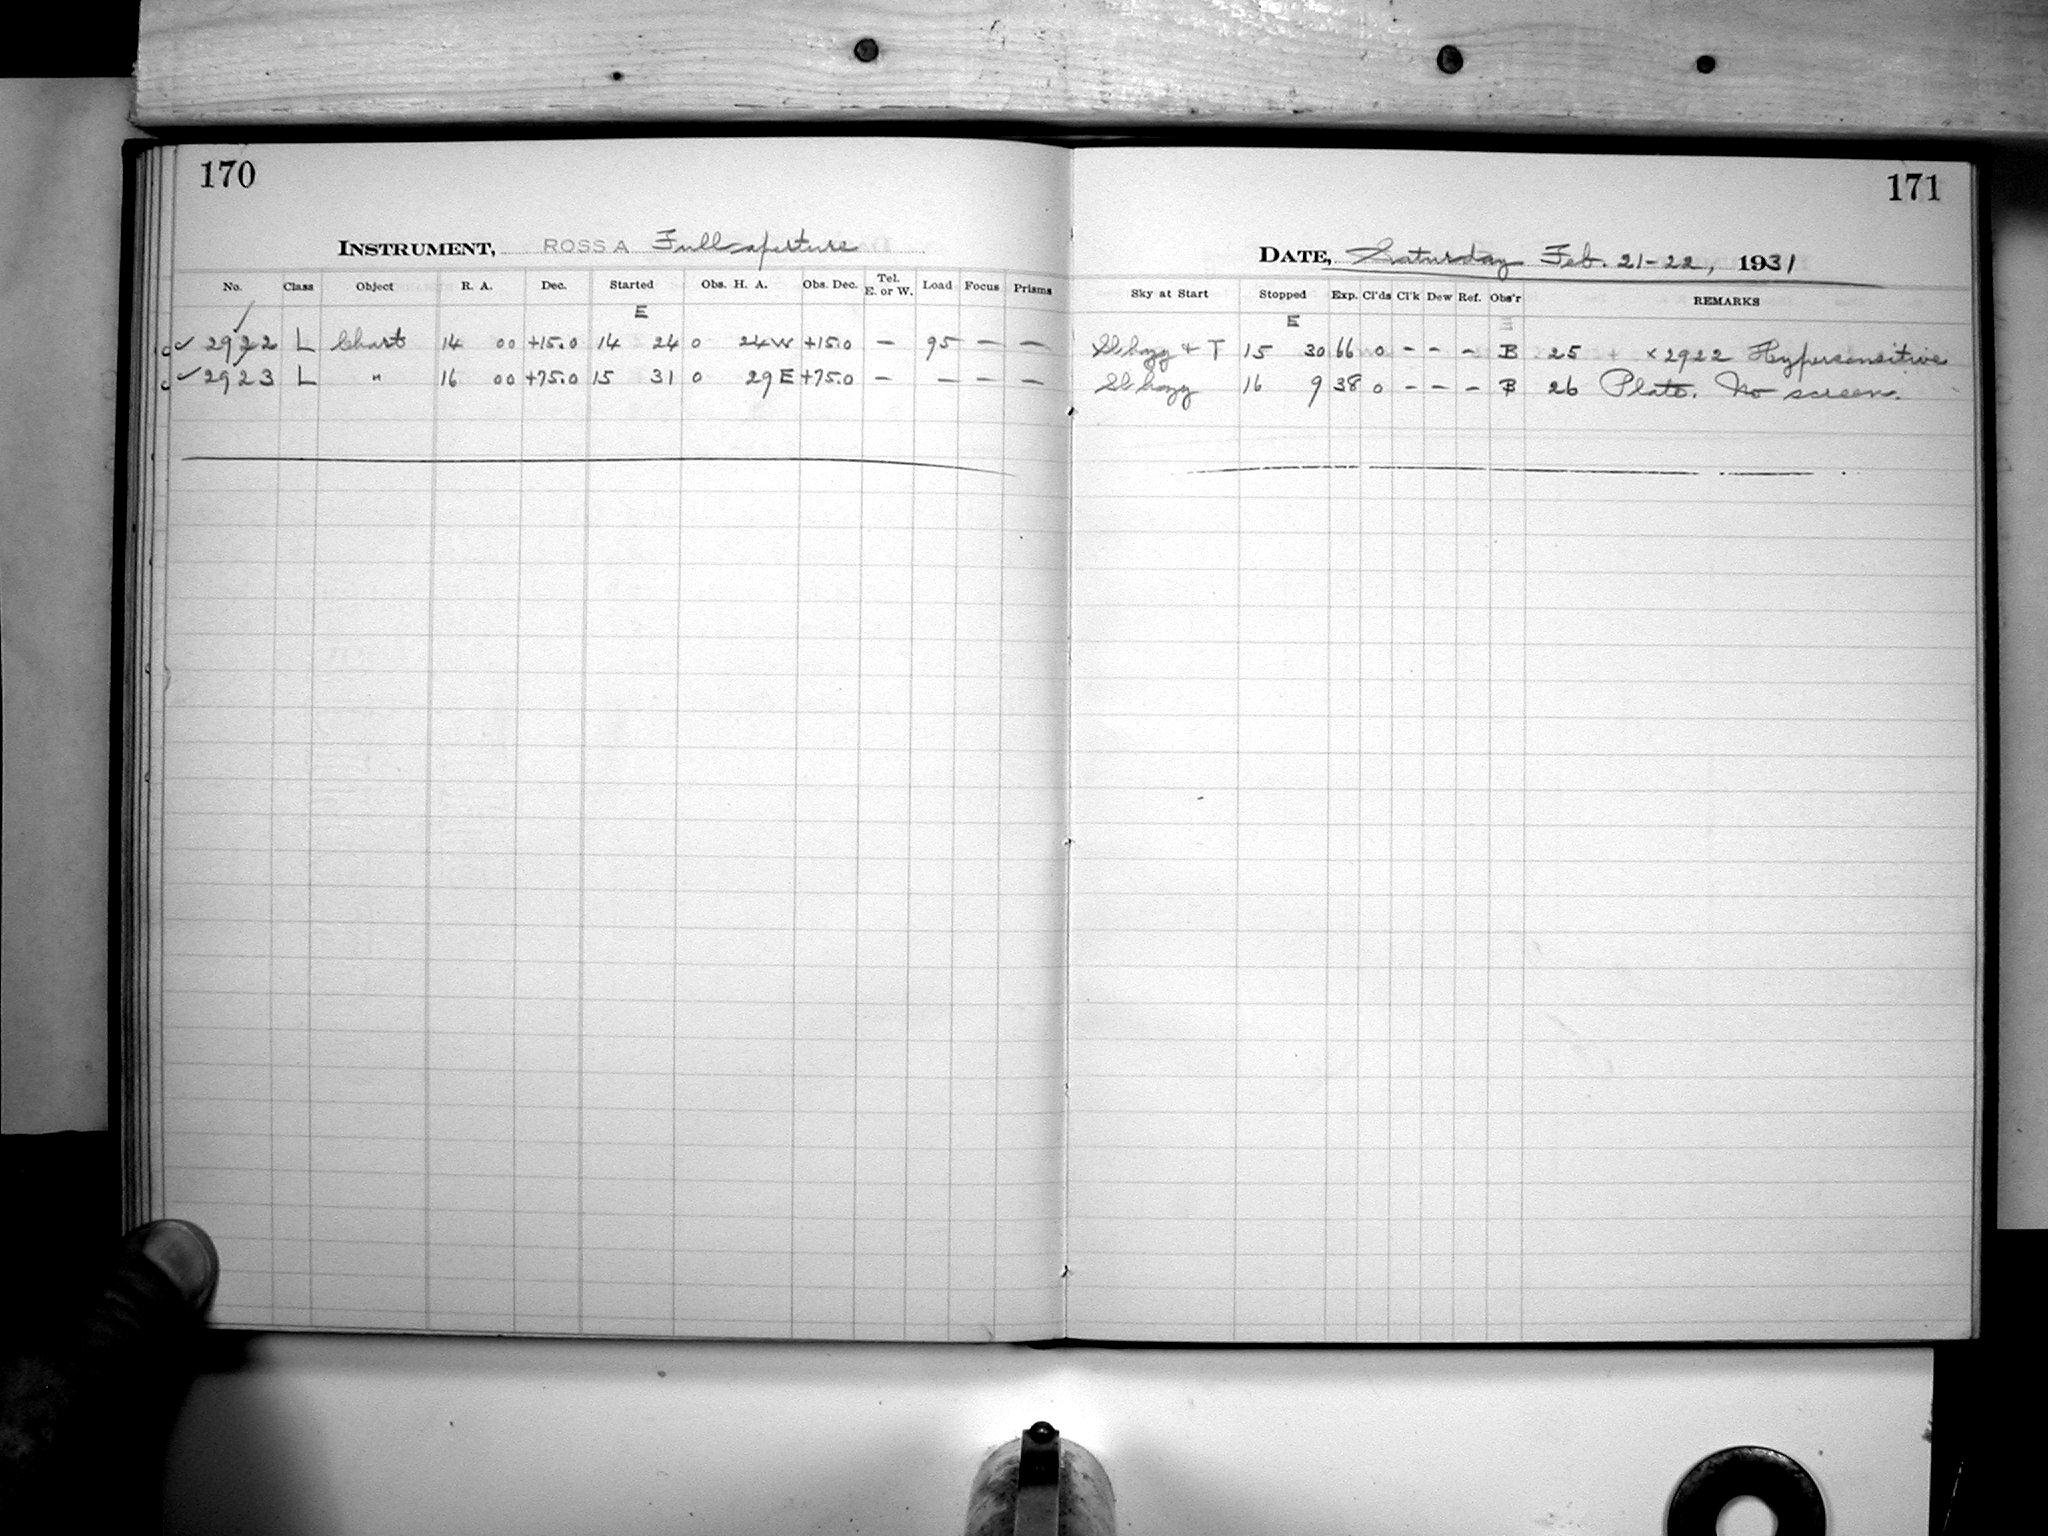 170
INSTRUMENT, ROSS A Full aperture
No. Class Object R. A. Dec. Started Obs. H. A. Obs. Dec. Tel. E. or W. Load Focus Prisms
E
✓ 2922 L Chart 14 00 +15.0 14 24 0 24 W +15.0 – 95 – –
✓ 2923 L " 16 00 +75.0 15 31 0 29 E +75.0 – – – –
171
DATE, Saturday Feb. 21-22, 1931
Sky at Start Stopped Exp. Cl'ds Cl'k Dew Ref. Obs'r REMARKS
E
Sl hazy + T 15 30 66 0 – – – B 25 × 2922 Hypersensitive
Sl hazy 16 9 38 0 – – – B 26 Plate. No screen.